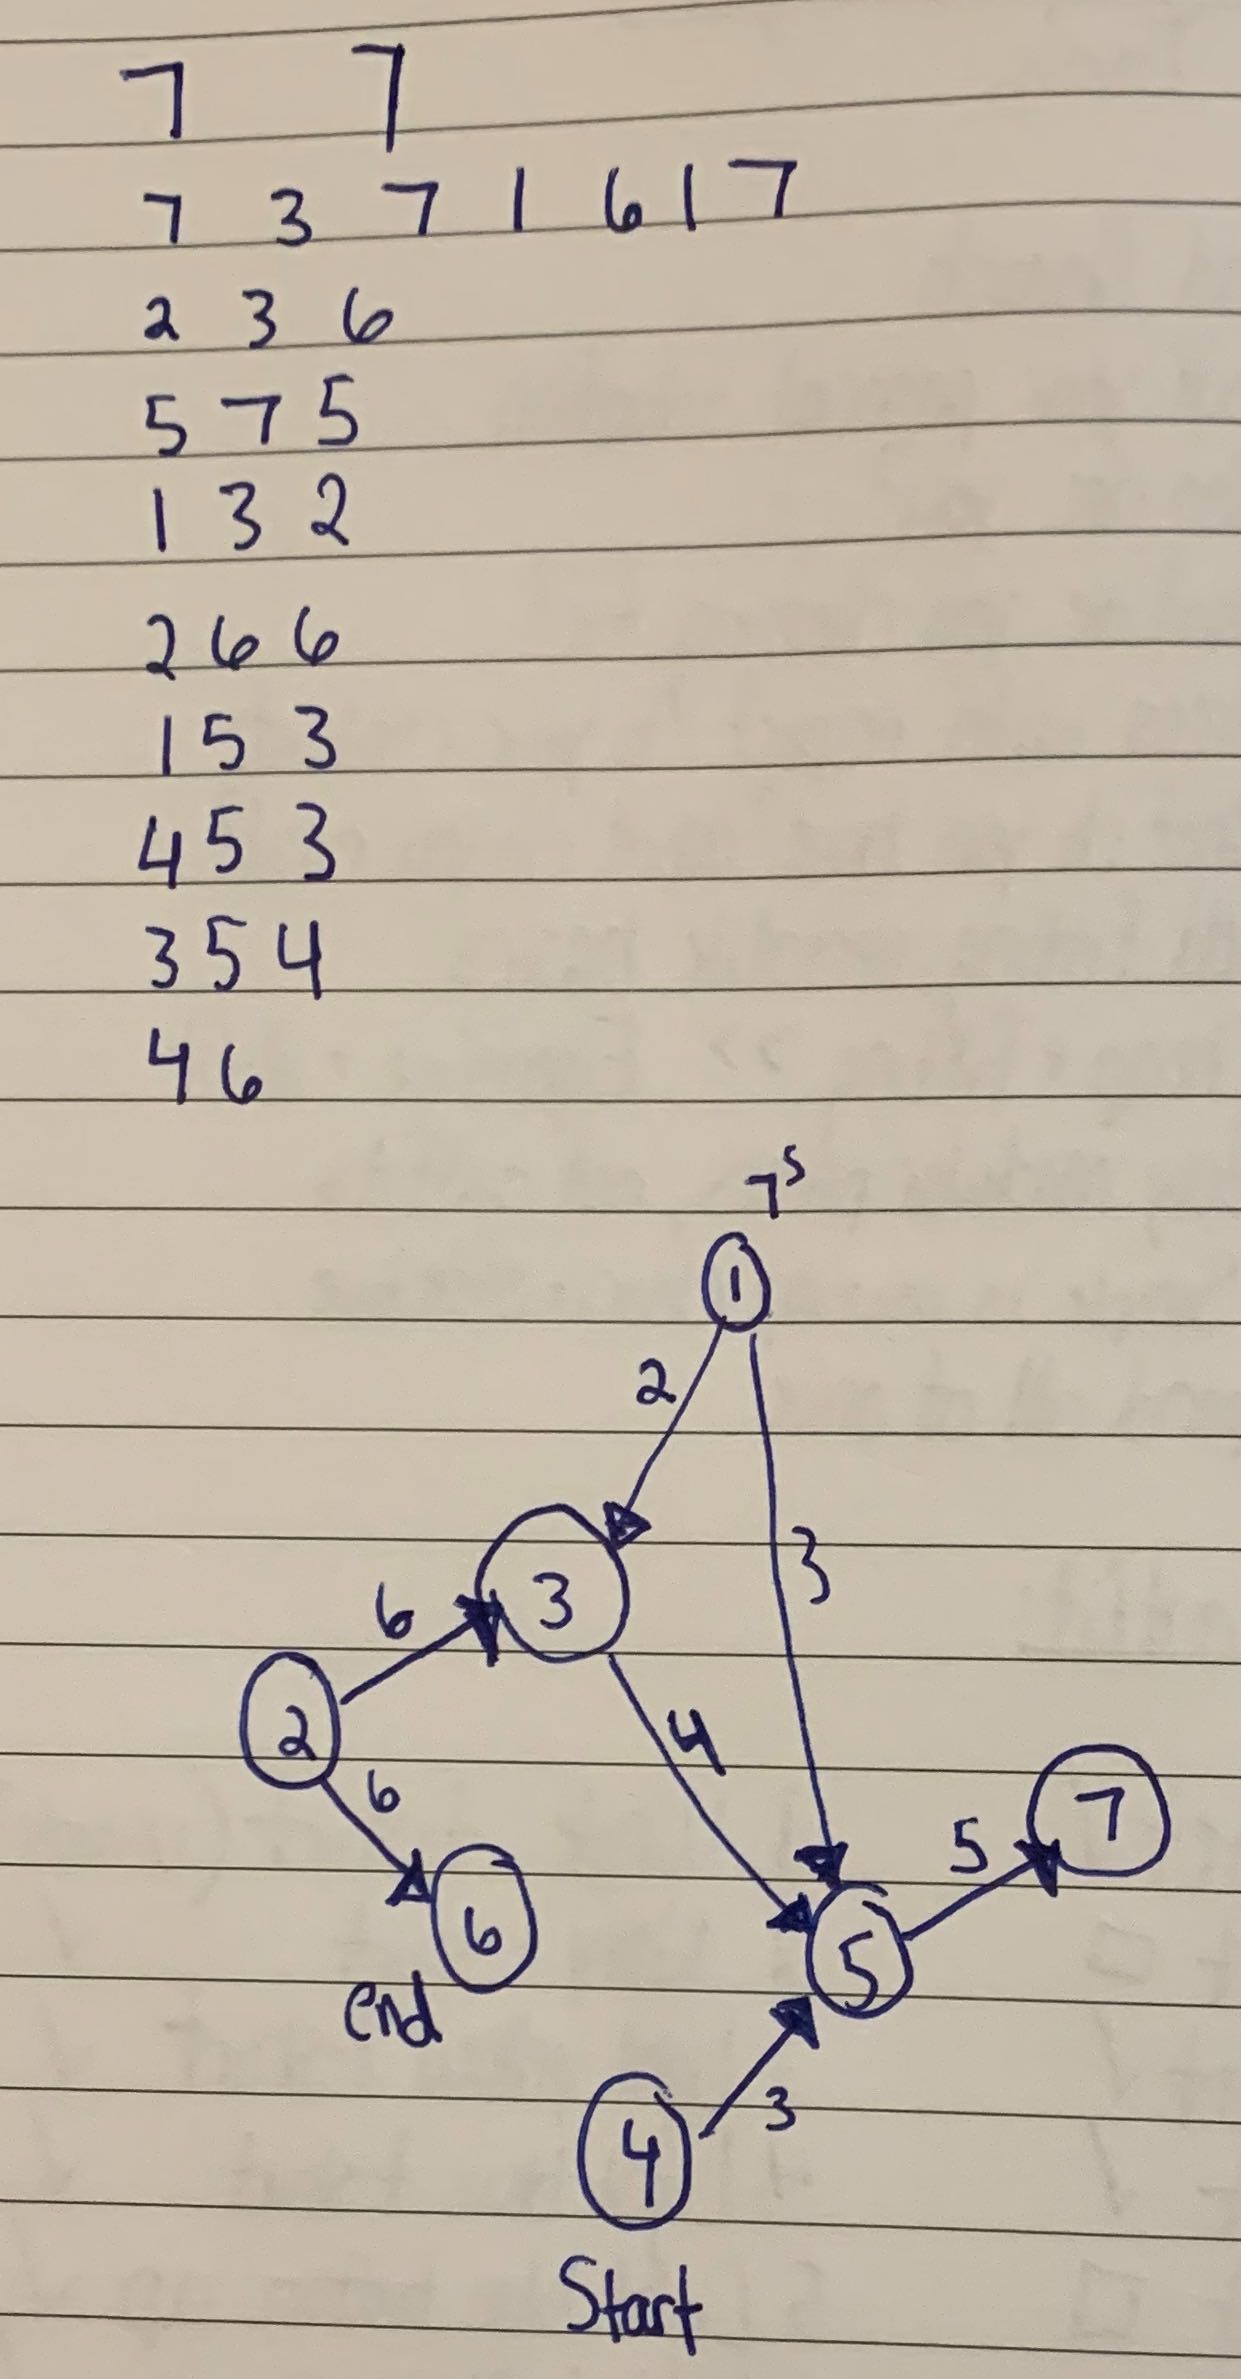 7 7
7 3 7 1 6 1 7
2 3 6
5 7 5
1 3 2
2 6 6
1 5 3
4 5 3
3 5 4
4 6
7s
1
2
3
3
6
4
2
6
7
5
6
5
end
3
4
Start